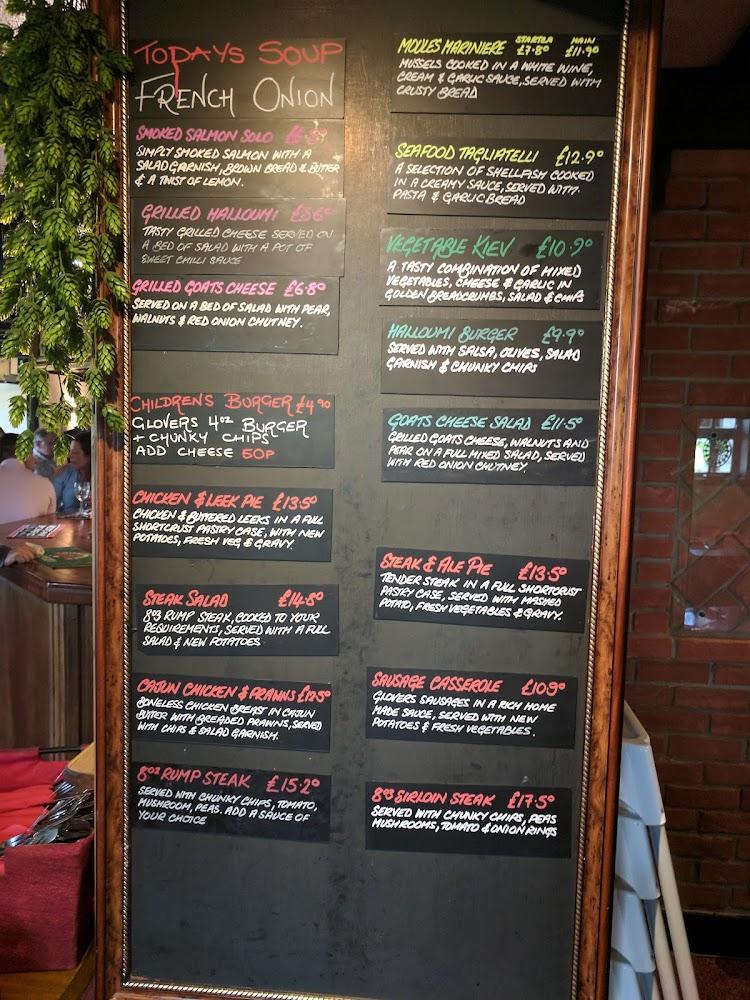 TODAYS SOUP
FRENCH ONION
SMOKED SALMON SOLO
SIMPLY SMOKED SALMON WITH A
SALAD GARNISH, BROWN BREAD & BUTTER
& A TWIST OF LEMON.
GRILLED HALLOUMI
TASTY GRILLED CHEESE SERVED ON
A BED OF SALAD WITH A POT OF
SWEET CHILLI SAUCE
GRILLED GOATS CHEESE £6.80
SERVED ON A BED OF SALAD WITH PEAR,
WALNUTS & RED ONION CHUTNEY.
CHILDREN'S BURGER £4.90
GLOVERS 4oz BURGER
+ CHUNKY CHIPS
ADD CHEESE 50P
CHICKEN & LEEK PIE £13.50
CHICKEN & BUTTERED LEEKS IN A FULL
SHORTCRUST PASTRY CASE, WITH NEW
POTATOES, FRESH VEG & GRAVY.
STEAK SALAD £14.80
8oz RUMP STEAK, COOKED TO YOUR
REQUIREMENTS, SERVED WITH A FULL
SALAD & NEW POTATOES
CAJUN CHICKEN & PRAWNS
BONELESS CHICKEN BREAST IN CAJUN
BUTTER WITH BREADED PRAWNS, SERVED
WITH CHIPS & SALAD GARNISH.
8oz RUMP STEAK £15.20
SERVED WITH CHUNKY CHIPS, TOMATO,
MUSHROOM, PEAS. ADD A SAUCE OF
YOUR CHOICE
MOULES MARINIERE STARTER £7.80 MAIN £11.90
MUSSELS COOKED IN A WHITE WINE,
CREAM & GARLIC SAUCE, SERVED WITH
CRUSTY BREAD
SEAFOOD TAGLIATELLI £12.90
A SELECTION OF SHELLFISH COOKED
IN A CREAMY SAUCE, SERVED WITH
PASTA & GARLIC BREAD
VEGETABLE KIEV £10.90
A TASTY COMBINATION OF MIXED
VEGETABLES, CHEESE & GARLIC IN
GOLDEN BREADCRUMBS, SALAD & CHIPS
HALLOUMI BURGER £9.90
SERVED WITH SALSA, OLIVES, SALAD
GARNISH & CHUNKY CHIPS
GOATS CHEESE SALAD £11.50
GRILLED GOATS CHEESE, WALNUTS AND
PEAR ON A FULL MIXED SALAD, SERVED
WITH RED ONION CHUTNEY.
STEAK & ALE PIE £13.50
TENDER STEAK IN A FULL SHORTCRUST
PASTRY CASE, SERVED WITH MASHED
POTATO, FRESH VEGETABLES & GRAVY.
SAUSAGE CASSEROLE £10.90
GLOVERS SAUSAGES IN A RICH HOME
MADE SAUCE, SERVED WITH NEW
POTATOES & FRESH VEGETABLES.
8oz SIRLOIN STEAK £17.50
SERVED WITH CHUNKY CHIPS, PEAS
MUSHROOMS, TOMATO & ONION RINGS